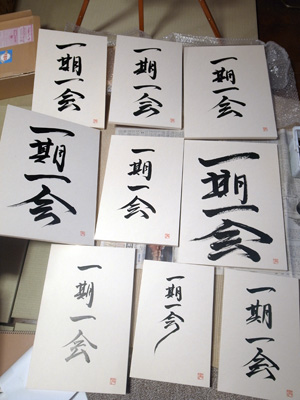 一期一会
一期一会
一期一会
一期一会
一期一会
一期一会
一期一会
一期一会
一期一会